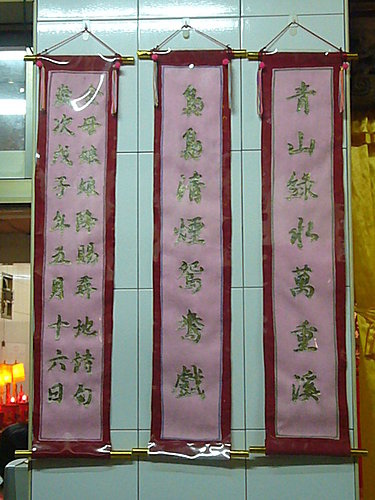 青山綠水萬重溪
裊裊清煙鴛鴦戲
母娘娘降賜尋地詩句
歲次戊子年五月十六日